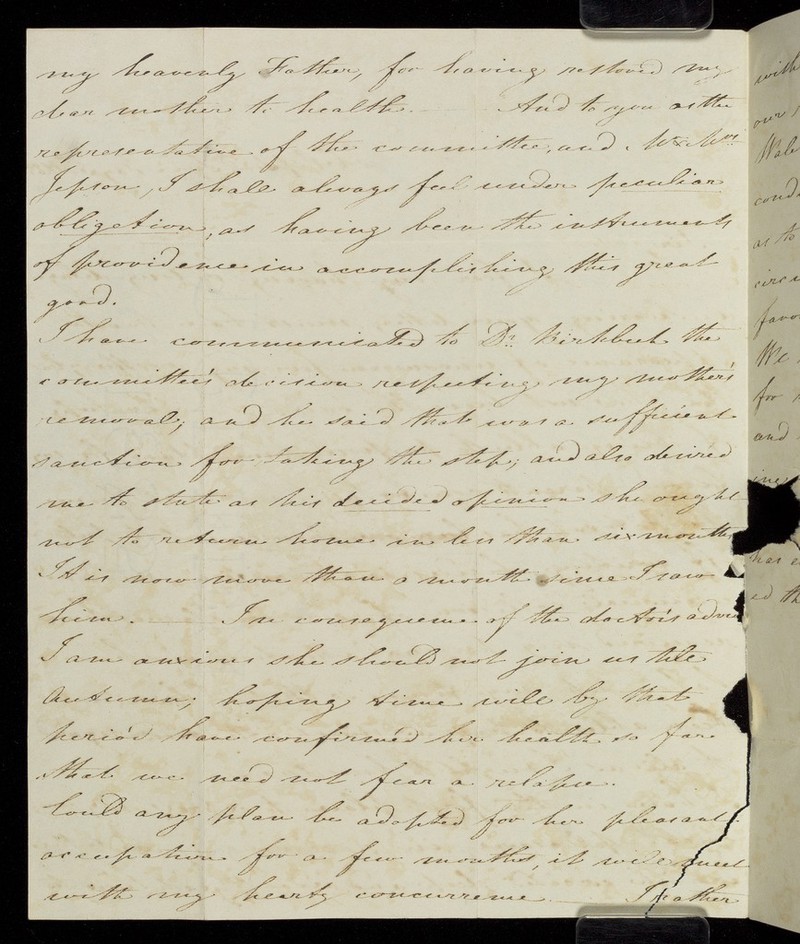 my heavenly Father, for having restored my
dear mother to health. — And to you as the
representative of the committee, and Mr & Mrs
Jepson, I shall always feel under peculiar
obligation, as having been the instruments
of providence in accomplishing this great
good.
I have communicated to Dr. Birkbeck the
committee's decision respecting my mother's
removal; and he said that was a sufficient
sanction for taking the step; and also desired
me to state as his decided opinion she ought
not to return home in less than six months
It is now more than a month since I saw
him. — In consequence of the doctor's advice
I am anxious she should not join us till
Autumn; hoping time will by that
period have confirm'd her health so far
that we need not fear a relapse.
Could any plan be adopted for her pleasant
occupation for a few months, it will meet
with my hearty concurrence. — I rather
with
our
cond
as to
circu
favo
We
for
and
has
ed th